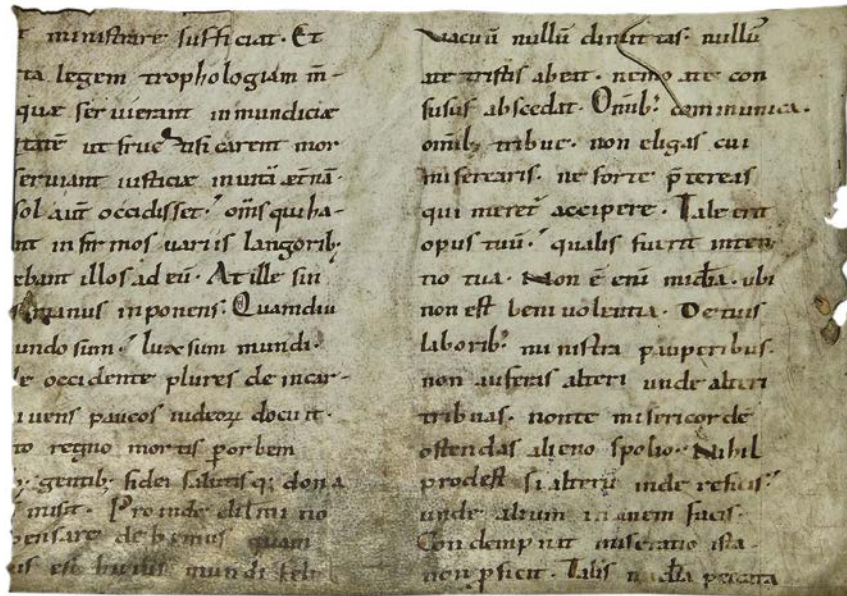 ministrare sufficiat. Et
ta legem trophologiam m̄-
quæ servierant inmundiciæ
tatē ut fructificarent mor
serviant iusticiæ in vitā æt̄nā.
sol aut̄ occidisset. om̄s qui ha-
nt infirmos variis langorib;
ebant illos ad eū. At ille sin
manus inponens. Quamdiu
undo sum. lux sum mundi.
occidente plures de incar-
ivens paucos iudeoꝝ docuit.
to regno mortis p orbem
gentib; fidei salutisq; dona
misit. Proinde dilmi no
pensare debemus quam
us est huius mundi
vacuū nullū dimittas. nullū
a te tristis abeat. nemo a te con
fusus abscedat. Omīb; communica.
omīb; tribue. non eligas cui
miserearis. ne forte p̄tereas
qui meret accipere. Tale erit
opus tuū. qualis fuerit inten
tio tua. Non ē enī mīa. ubi
non est benivolentia. De tuis
laborib; ministra pauperibus.
non auferas alteri unde alteri
tribuas. non te misericorde
ostendas alieno spolio. Nihil
prodest si alterū inde reficis.
unde alium inanem facis.
Condempnat miseratio ista.
non pficit. Talis peccata